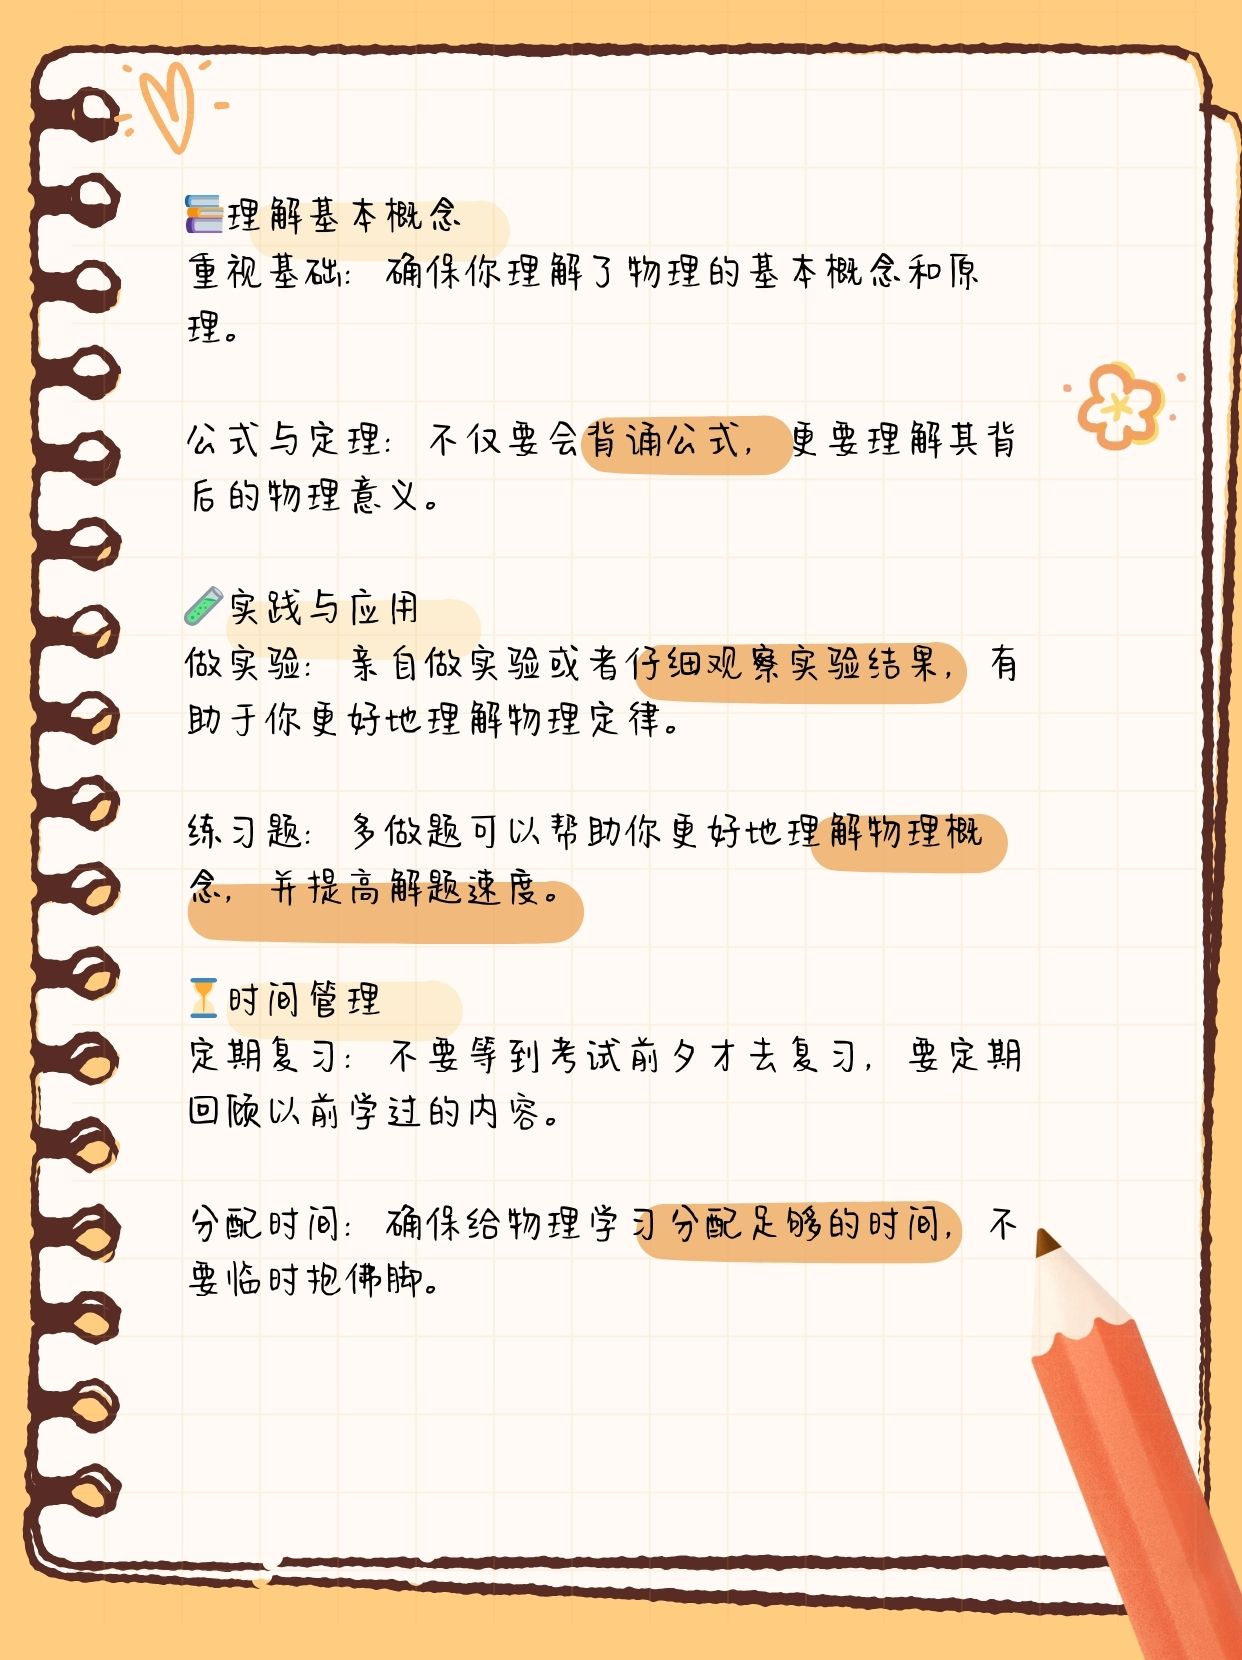 📚理解基本概念
重视基础: 确保你理解了物理的基本概念和原
理。
公式与定理: 不仅要会背诵公式, 更要理解其背
后的物理意义。
🧪实践与应用
做实验: 亲自做实验或者仔细观察实验结果, 有
助于你更好地理解物理定律。
练习题: 多做题可以帮助你更好地理解物理概
念, 并提高解题速度。
⏳时间管理
定期复习: 不要等到考试前夕才去复习, 要定期
回顾以前学过的内容。
分配时间: 确保给物理学习分配足够的时间, 不
要临时抱佛脚。